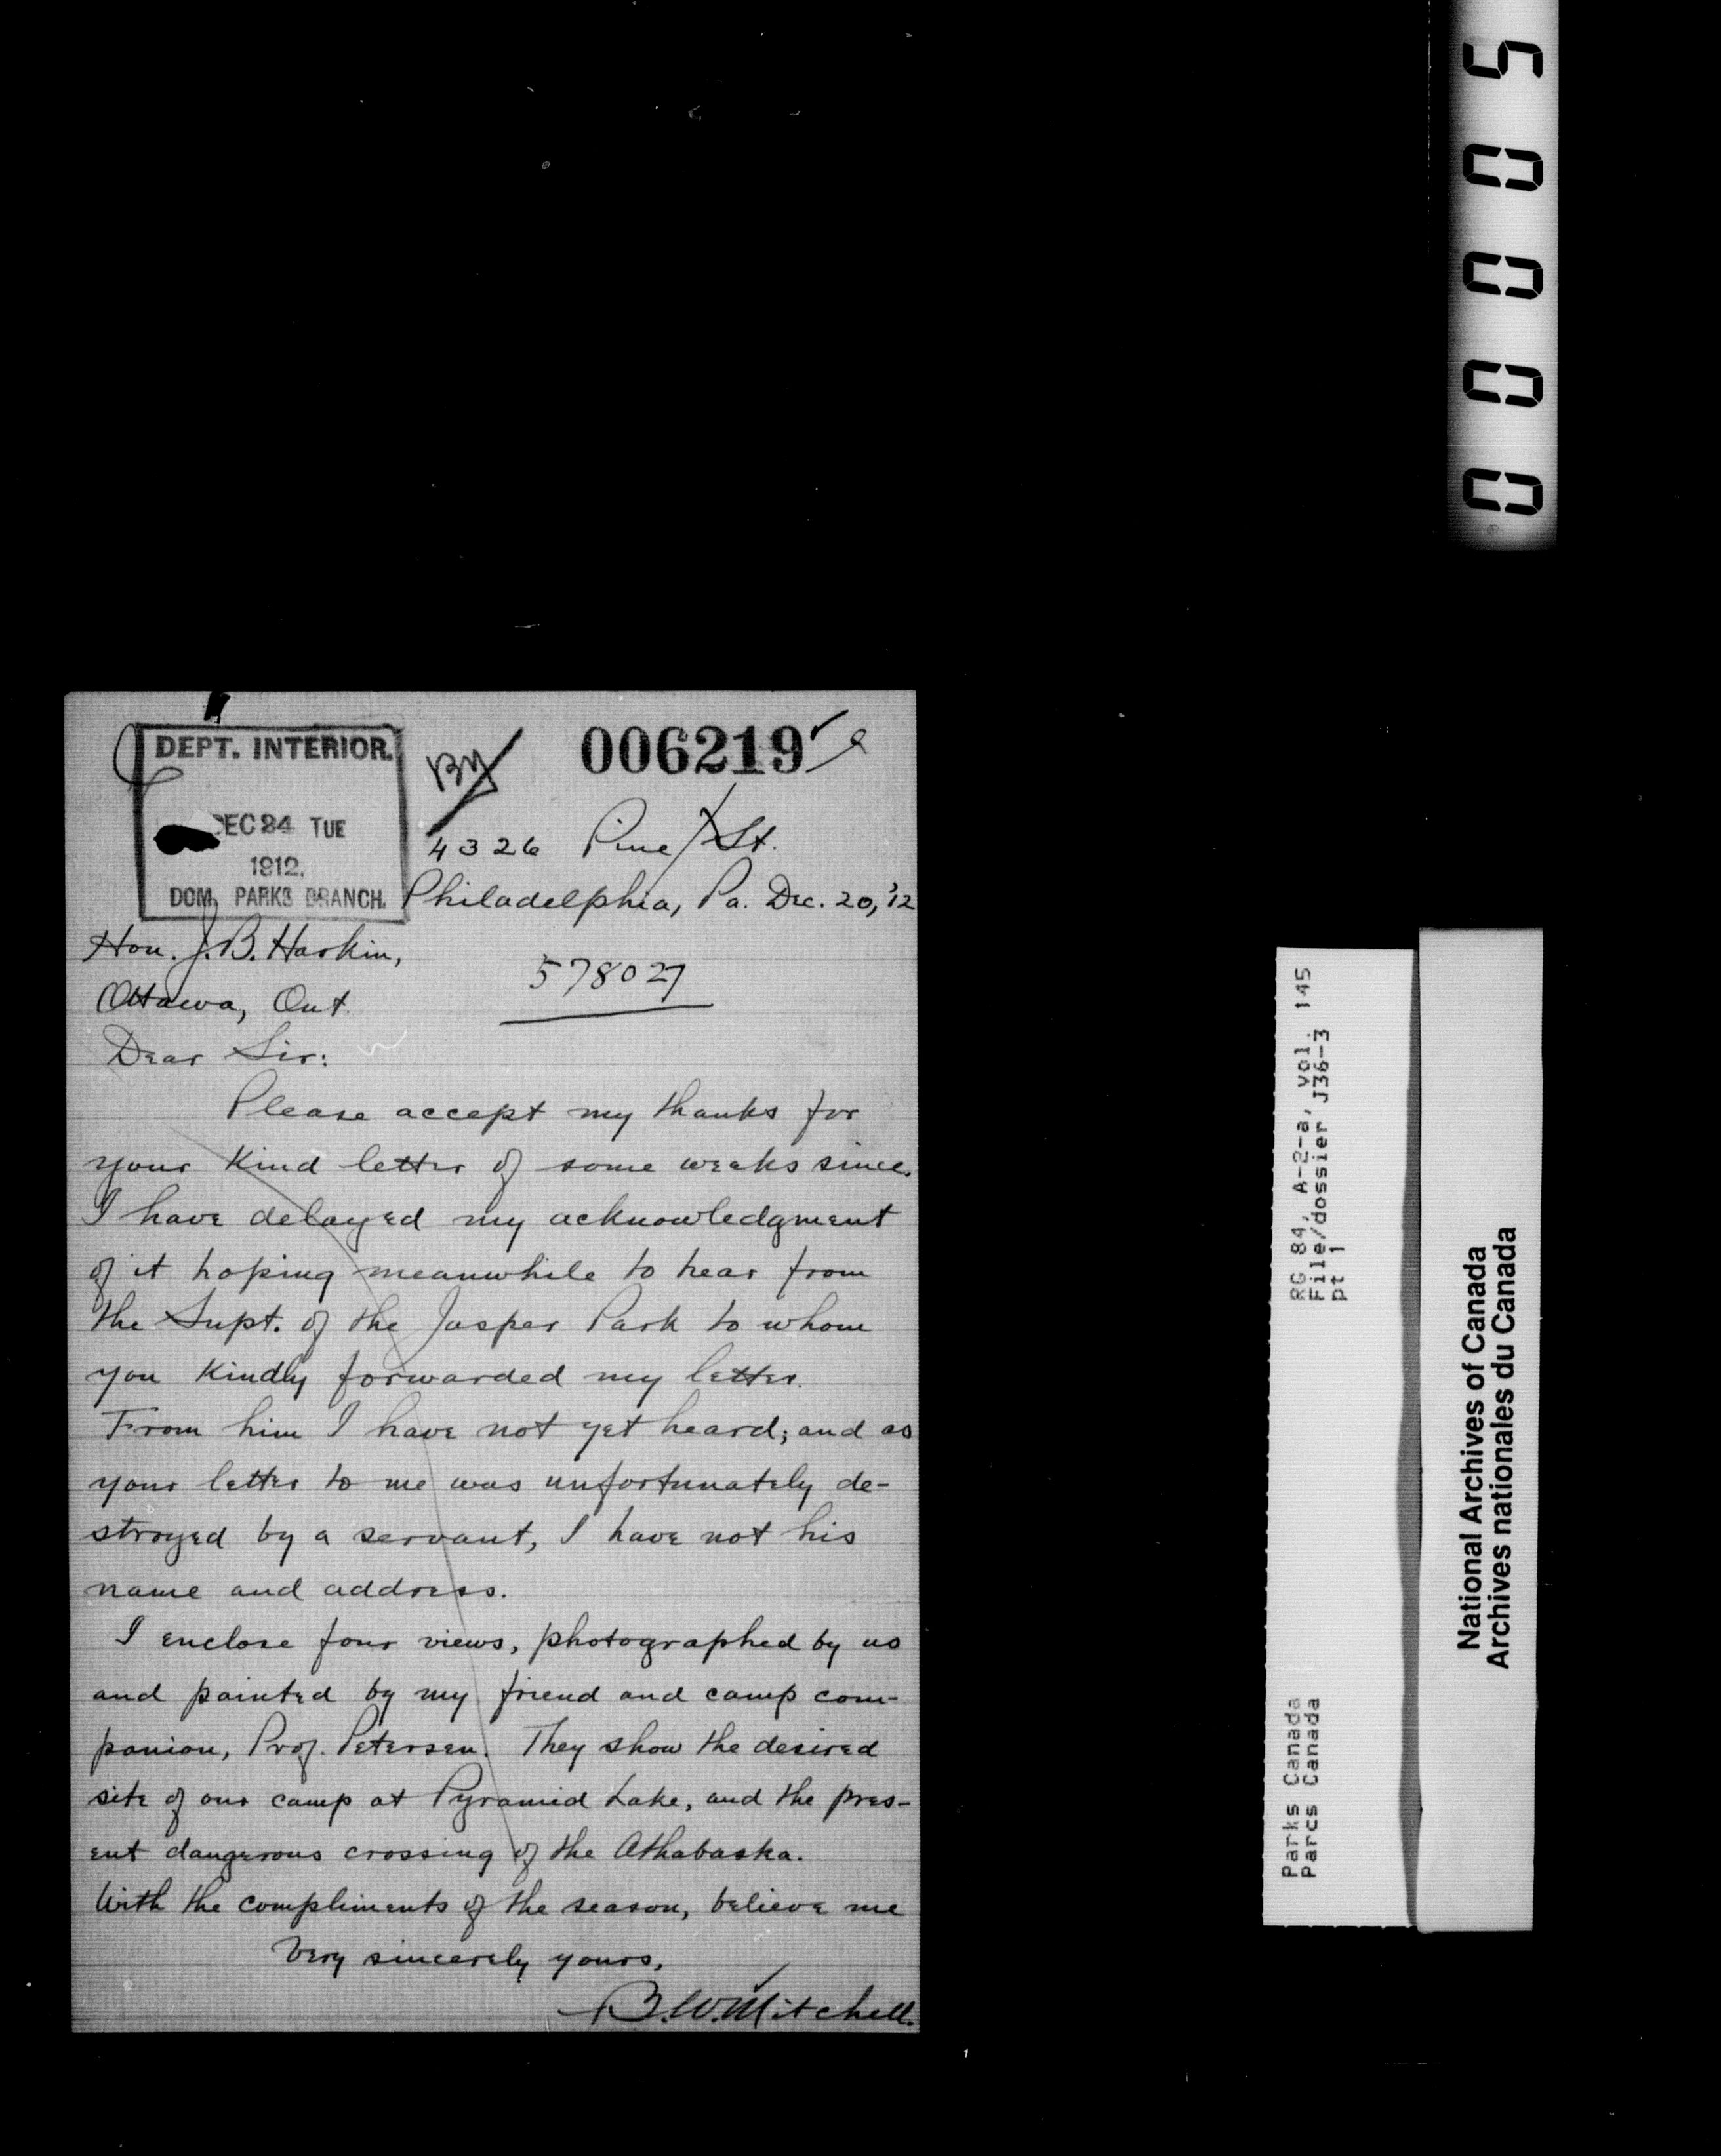 DEPT. INTERIOR.
DEC 24 TUE
1912.
DOM. PARKS BRANCH.
By
006219
4326 Pine St.
Philadelphia, Pa. Dec. 20, '12
Hon. J. B. Harkin,
578027
Ottawa, Ont.
Dear Sir:
Please accept my thanks for
your kind letter of some weeks since.
I have delayed my acknowledgment
of it hoping meanwhile to hear from
the Supt. of the Jasper Park to whom
you kindly forwarded my letter.
From him I have not yet heard; and as
your letter to me was unfortunately de-
stroyed by a servant, I have not his
name and address.
I enclose four views, photographed by us
and painted by my friend and camp com-
panion, Prof. Petersen. They show the desired
site of our camp at Pyramid Lake, and the pres-
ent dangerous crossing of the Athabaska.
With the compliments of the season, believe me
Very sincerely yours,
B. W. Mitchell.
00005
RG 84, A-2-a, vol. 145
File/dossier J36-3
pt 1
Parks Canada
Parcs Canada
National Archives of Canada
Archives nationales du Canada